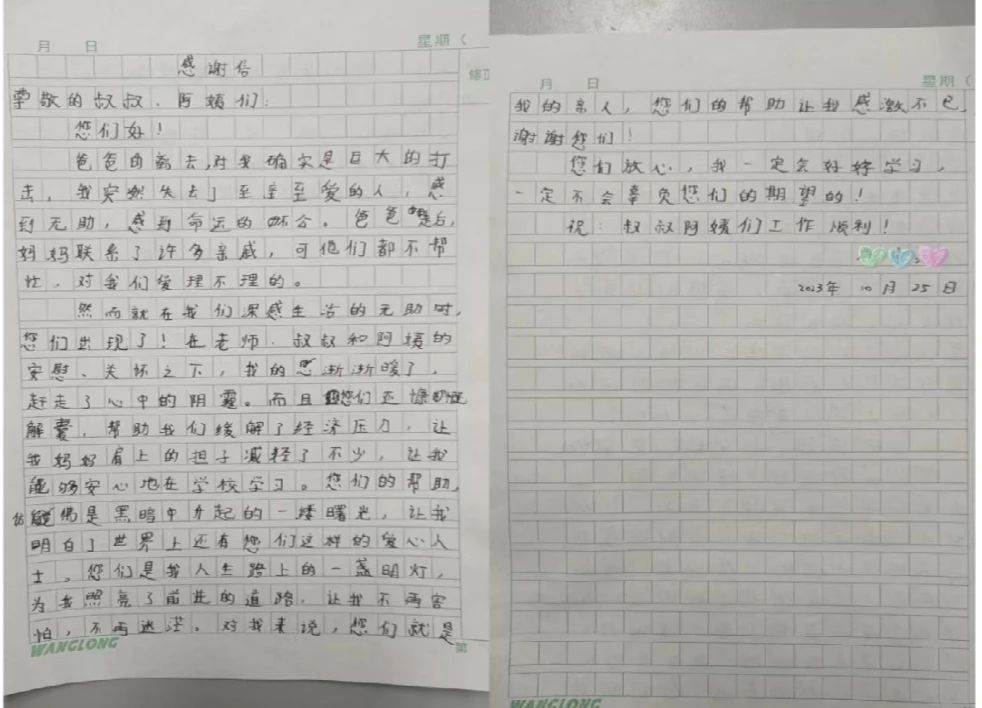 月 日
星期（
感谢信
修正
尊敬的叔叔、阿姨们：
您们好！
爸爸的离去，对我确实是巨大的打
击，我突然失去了至亲至爱的人，感
到无助，感到命运的不公。爸爸走后，
妈妈联系了许多亲戚，可他们都不帮
忙，对我们爱理不理的。
然而就在我们深感生活的无助时，
您们出现了！在老师、叔叔和阿姨的
安慰、关怀之下，我的心渐渐暖了，
赶走了心中的阴霾。而且您们还慷慨
解囊，帮助我们缓解了经济压力，让
我妈妈肩上的担子减轻了不少，让我
能够安心地在学校学习。您们的帮助，
仿佛是黑暗中升起的一缕曙光，让我
明白了世界上还有您们这样的爱心人
士。您们是我人生路上的一盏明灯，
为我照亮了前进的道路，让我不再害
怕，不再迷茫。对我来说，您们就是
WANGLONG
第
月 日
星期（
我的亲人，您们的帮助让我感激不已，
谢谢您们！
您们放心，我一定会好好学习，
一定不会辜负您们的期望的！
祝：叔叔阿姨们工作顺利！
2023年 10月 25日
WANGLONG